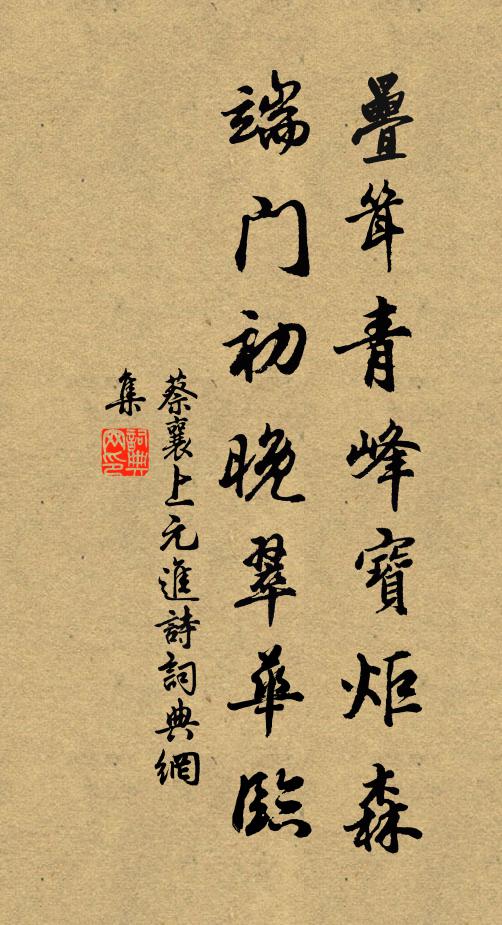 疊耸青峰寶炬森
端門初晚翠華臨
蔡襄上元進詩詞典網
集
詞典
网印